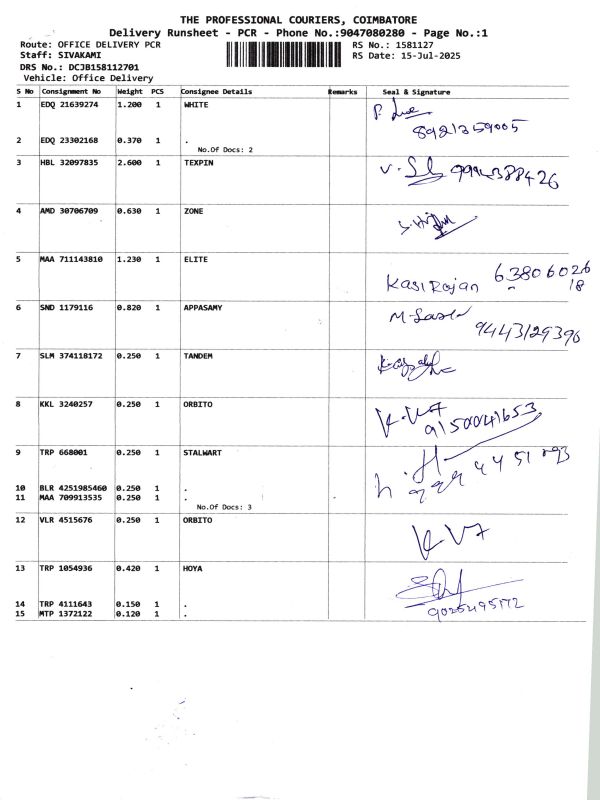 THE PROFESSIONAL COURIERS, COIMBATORE
Delivery Runsheet - PCR - Phone No.:9047080280 - Page No.:1
Route: OFFICE DELIVERY PCR
RS No.: 1581127
Staff: SIVAKAMI
RS Date: 15-Jul-2025
DRS No.: DCJB158112701
Vehicle: Office Delivery
S No Consignment No Weight PCS Consignee Details Remarks Seal & Signature
1 EDQ 21639274 1.200 1 WHITE
8921359005
2 EDQ 23302168 0.370 1 .
No.Of Docs: 2
3 HBL 32097835 2.600 1 TEXPIN
4 AMD 30706709 0.630 1 ZONE
5 MAA 711143810 1.230 1 ELITE
Kasi Rajan 63806026
18
6 SND 1179116 0.820 1 APPASAMY
9443129396
7 SLM 374118172 0.250 1 TANDEM
8 KKL 3240257 0.250 1 ORBITO
9150041653
9 TRP 668001 0.250 1 STALWART
10 BLR 4251985460 0.250 1 .
11 MAA 709913535 0.250 1 .
No.Of Docs: 3
12 VLR 4515676 0.250 1 ORBITO
13 TRP 1054936 0.420 1 HOYA
14 TRP 4111643 0.150 1 .
15 MTP 1372122 0.120 1 .